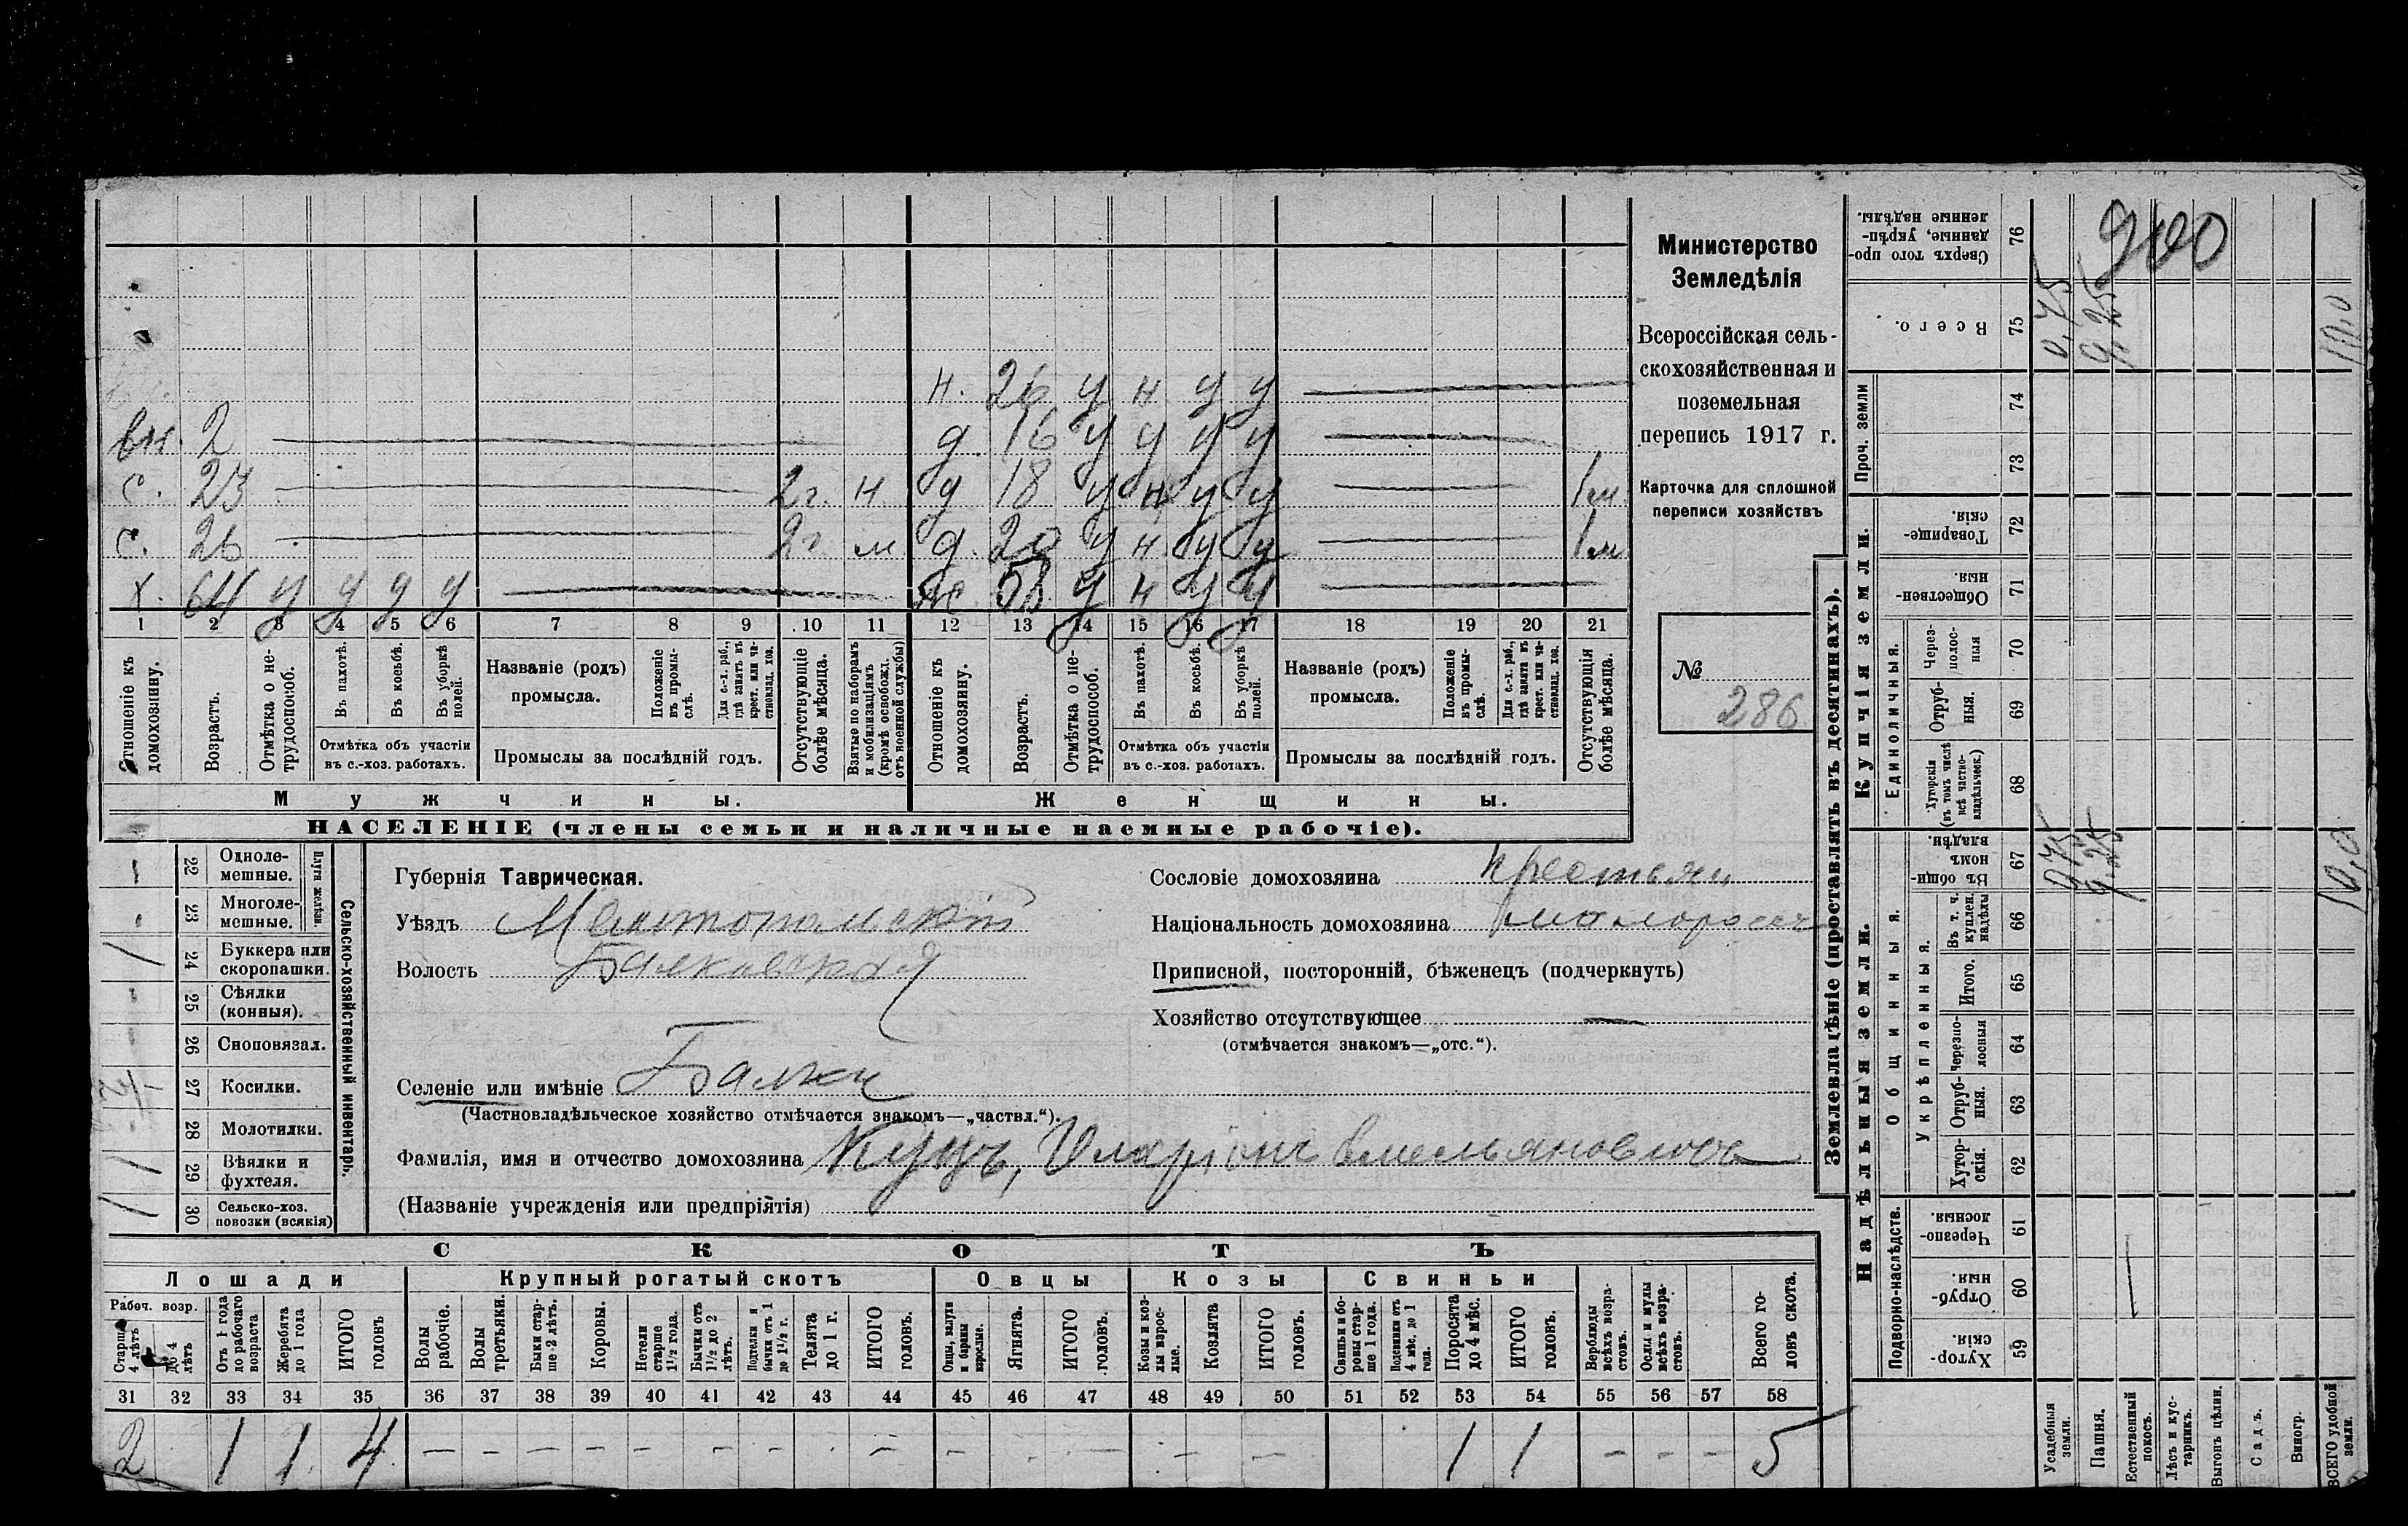 н. 26 у н у у
вн. 2 д 16 у у у у
с. 23 2г. н д 18 у н у у 1м.
с. 26 2г м д. 20 у н у у 1м
х. 64 у у у у ж. 53 у н у у
1 2 3 4 5 6 7 8 9 10 11 12 13 14 15 16 17 18 19 20 21
Отношеніе къ домохозяину.
Возрастъ.
Отмѣтка о нетрудоспособ.
Въ пахотѣ.
Въ косьбѣ.
Въ уборкѣ полей.
Отмѣтка объ участіи
въ с.-хоз. работахъ.
Названіе (родъ)
промысла.
Положеніе въ промыслѣ.
Для с.-х. раб., гдѣ занятъ въ крест. или частновлад. хоз.
Промыслы за послѣдній годъ.
Отсутствующіе болѣе мѣсяца.
Взятые по наборамъ и мобилизаціямъ (кромѣ освобожд. отъ военной службы)
Отношеніе къ домохозяину.
Возрастъ.
Отмѣтка о нетрудоспособ.
Въ пахотѣ.
Въ косьбѣ.
Въ уборкѣ полей.
Отмѣтка объ участіи
въ с.-хоз. работахъ.
Названіе (родъ)
промысла.
Положеніе въ промыслѣ.
Для с.-х. раб., гдѣ занята въ крест. или частновлад. хоз.
Промыслы за послѣдній годъ.
Отсутствующія болѣе мѣсяца.
Мужчины. Женщины.
НАСЕЛЕНІЕ (члены семьи и наличные наемные рабочіе).
Министерство
Земледѣлія
Всероссійская сель-
скохозяйственная и
поземельная
перепись 1917 г.
Карточка для сплошной
переписи хозяйствъ
№
286
Сельско-хозяйственный инвентарь.
Плуги желѣзн.
22 Одноле-
мешные.
23 Многоле-
мешные.
1 24 Буккера или
скоропашки.
25 Сѣялки
(конныя).
26 Сноповязал.
27 Косилки.
28 Молотилки.
1 29 Вѣялки и
фухтеля.
1 30 Сельско-хоз.
повозки (всякія)
Губернія Таврическая.
Уѣздъ Мелитопольскій
Волость Балковская
Селеніе или имѣніе Балки
(Частновладѣльческое хозяйство отмѣчается знакомъ—„частвл.“).
Фамилія, имя и отчество домохозяина Куцъ, Иларіонъ Емельяновичъ
(Названіе учрежденія или предпріятія)
Сословіе домохозяина крестьян
Національность домохозяина малоросс
Приписной, посторонній, бѣженецъ (подчеркнуть)
Хозяйство отсутствующее —
(отмѣчается знакомъ—„отс.“).
СКОТЪ
Лошади Крупный рогатый скотъ Овцы Козы Свиньи
Рабоч. возр.
Старше 4 лѣтъ
до 4 лѣтъ
Отъ 1 года до рабочаго возраста
Жеребята до 1 года
ИТОГО головъ
Волы рабочіе.
Волы третьяки.
Быки старше 2 лѣтъ.
Коровы.
Нетели старше 1½ года.
Бычки отъ 1½ до 2 лѣтъ.
Подтелки и бычки отъ 1 до 1½ г.
Телята до 1 г.
ИТОГО головъ.
Овцы, валухи и бараны взрослые.
Ягнята.
ИТОГО головъ.
Козы и козлы взрослые.
Козлята
ИТОГО головъ.
Свиньи и боровы старше 1 года.
Подсвинки отъ 4 мѣс. до 1 года.
Поросята до 4 мѣс.
ИТОГО головъ.
Верблюды всѣхъ возрастовъ.
Ослы и мулы всѣхъ возрастовъ.
Всего головъ скота.
31 32 33 34 35 36 37 38 39 40 41 42 43 44 45 46 47 48 49 50 51 52 53 54 55 56 57 58
2 1 1 4 — — — — — — — — — — — — 1 1 — — — 5
Землевладѣніе (проставлять въ десятинахъ).
Надѣльныя земли. Купчія земли. Проч. земли
Подворно-наслѣдств.
Общинныя.
Укрѣпленныя.
Единоличныя.
Сверхъ того проданные, укрѣпленные надѣлы. 76
900
Всего. 75 0,75 9,25 10,0
74
73
Товарищескія. 72
Общественныя. 71
Черезполосныя 70
Отрубныя. 69
Хуторскія (въ томъ числѣ всѣ частновладѣльческ.) 68
Въ общинномъ владѣн. 67 0,75 9.25 10,0
Въ т. ч. куплен. надѣлы 66
Итого. 65
Черезполосныя 64
Отрубныя. 63
Хуторскія. 62
Черезполосныя. 61
Отрубныя 60
Хуторскія 59
Усадебныя земли.
Пашня.
Естественный покосъ.
Лѣсъ и кустарникъ.
Выгонъ цѣлин.
Садъ.
Виногр.
ВСЕГО удобной земли.